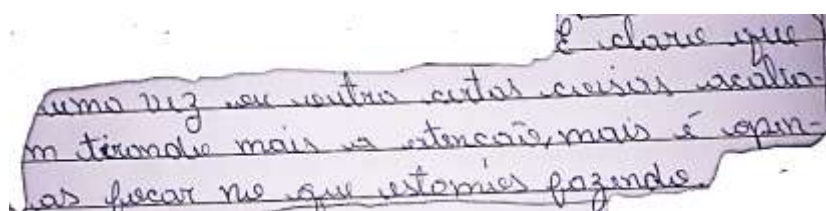 É claro que
uma vez ou outra certas coisas acaba-
m tirando mais a atenção, mais é apen-
as focar no que estamos fazendo.